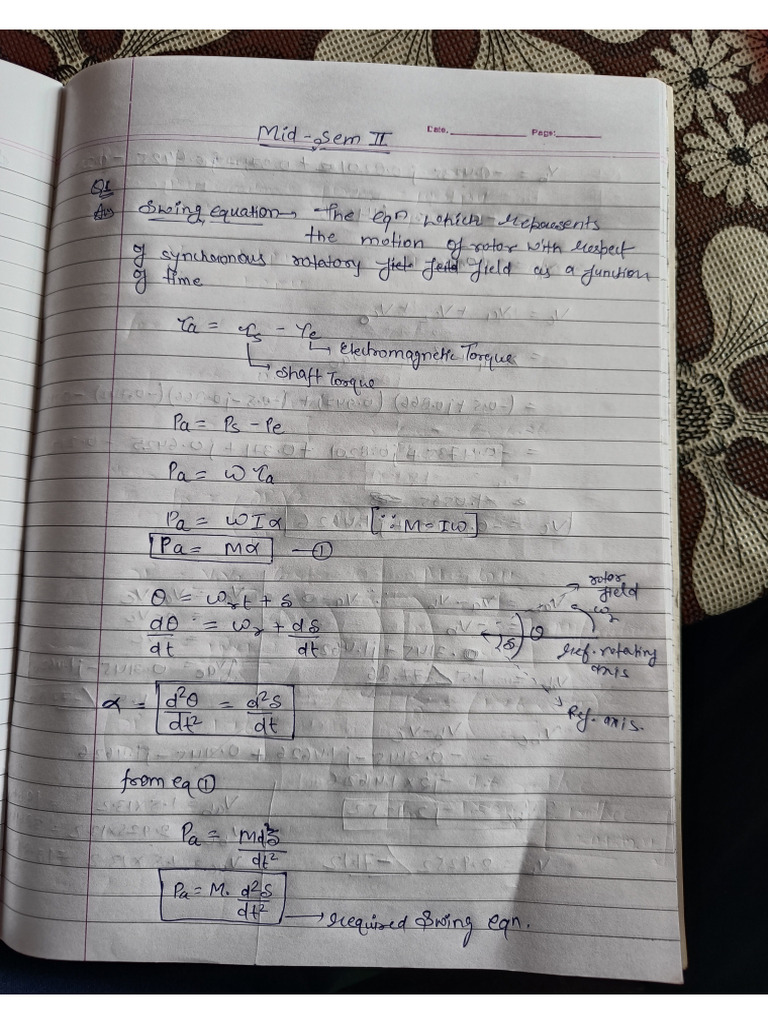 Mid-Sem II
Date. Page:
Q1
Ans Swing equation → The eqn which represents
the motion of rotor with respect
of synchronous rotatory field as a function
of time
τa = τs - τe
→ Electromagnetic Torque
→ Shaft Torque
Pa = Ps - Pe
Pa = ω τa
Pa = ω I α [∵ M = Iω]
Pa = Mα — ①
θ = ωrt + δ
dθ/dt = ωr + dδ/dt
rotor field
ωr
θ
δ
ref. rotating axis
Ref. axis.
α = d²θ/dt² = d²δ/dt
from eq ①
Pa = Md²δ/dt²
Pa = M. d²δ/dt² → required Swing eqn.